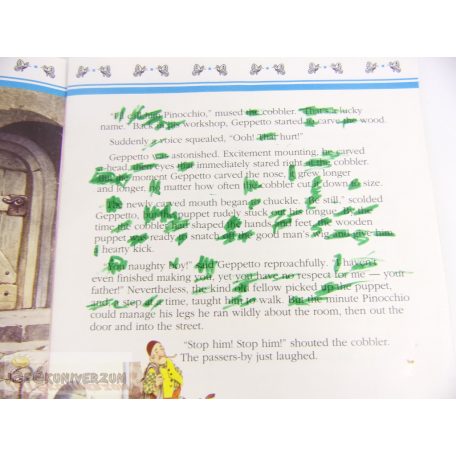 "I'll call him Pinocchio," mused the cobbler. "That's a lucky
name." Back in his workshop, Geppetto started to carve the wood.
Suddenly a voice squealed, "Ooh! That hurt!"
Geppetto was astonished. Excitement mounting, he carved
a head, then eyes that immediately stared right at the cobbler.
But the moment Geppetto carved the nose, it grew longer
and longer, no matter how often the cobbler cut it down to size.
The newly carved mouth began to chuckle. "Be still," scolded
Geppetto, but the puppet rudely stuck out his tongue. By the
time the cobbler had shaped the hands and feet, the wooden
puppet was ready to snatch off the good man's wig and give him
a hearty kick.
"You naughty boy!" said Geppetto reproachfully. "I haven't
even finished making you, yet you have no respect for me — your
father!" Nevertheless, the kind old fellow picked up the puppet,
and a step at a time, taught him to walk. But the minute Pinocchio
could manage his legs he ran wildly about the room, then out the
door and into the street.
"Stop him! Stop him!" shouted the cobbler.
The passers-by just laughed.